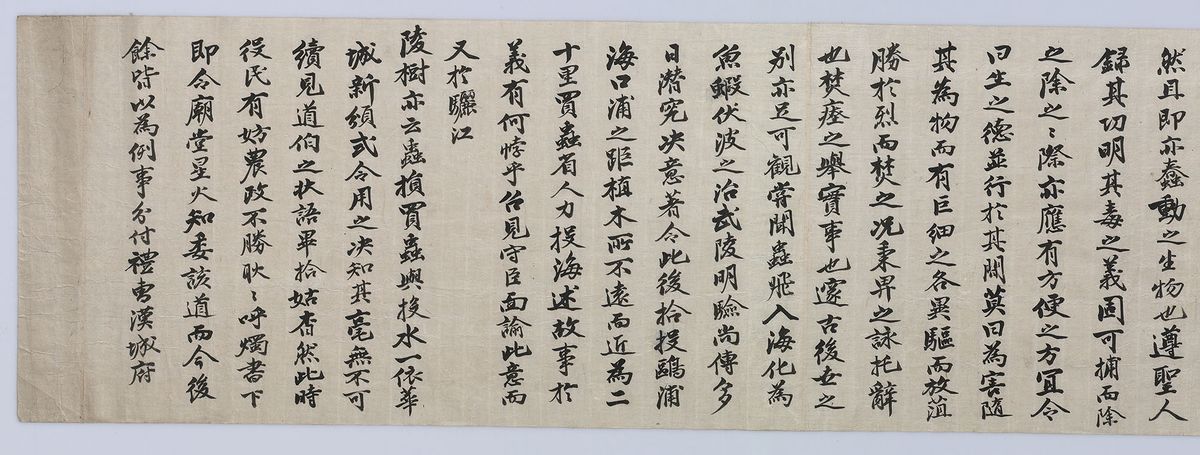 然且卽亦蠢動之生物也遵聖人
歸其功明其毒之義固可捕而除
之除之〻際亦應有方便之方冝令
曰生之德並行於其間莫曰為害隨
其為物而有巨細之各異驅而放菹
勝於烈而焚之况秉畀之詠托辭
也焚瘞之擧實事也邃古後世之
別亦足可觀嘗聞蟲飛入海化為
魚蝦伏波之治武陵明驗尚傳多
日潛究决意著令此後拾投鷗浦
海口浦之距植木所不遠而近為二
十里買蟲省人力投海述故事於
義有何悖乎召見守臣面諭此意而
又於驪江
陵樹亦云蟲損買蟲與投水一依華
城新頒式令用之决知其毫無不可
續見道伯之狀語畢拾姑杳然此時
役民有妨農政不勝耿〻呼燭書下
卽令廟堂星火知委該道而今後
餘皆以為例事分付禮曹漢城府